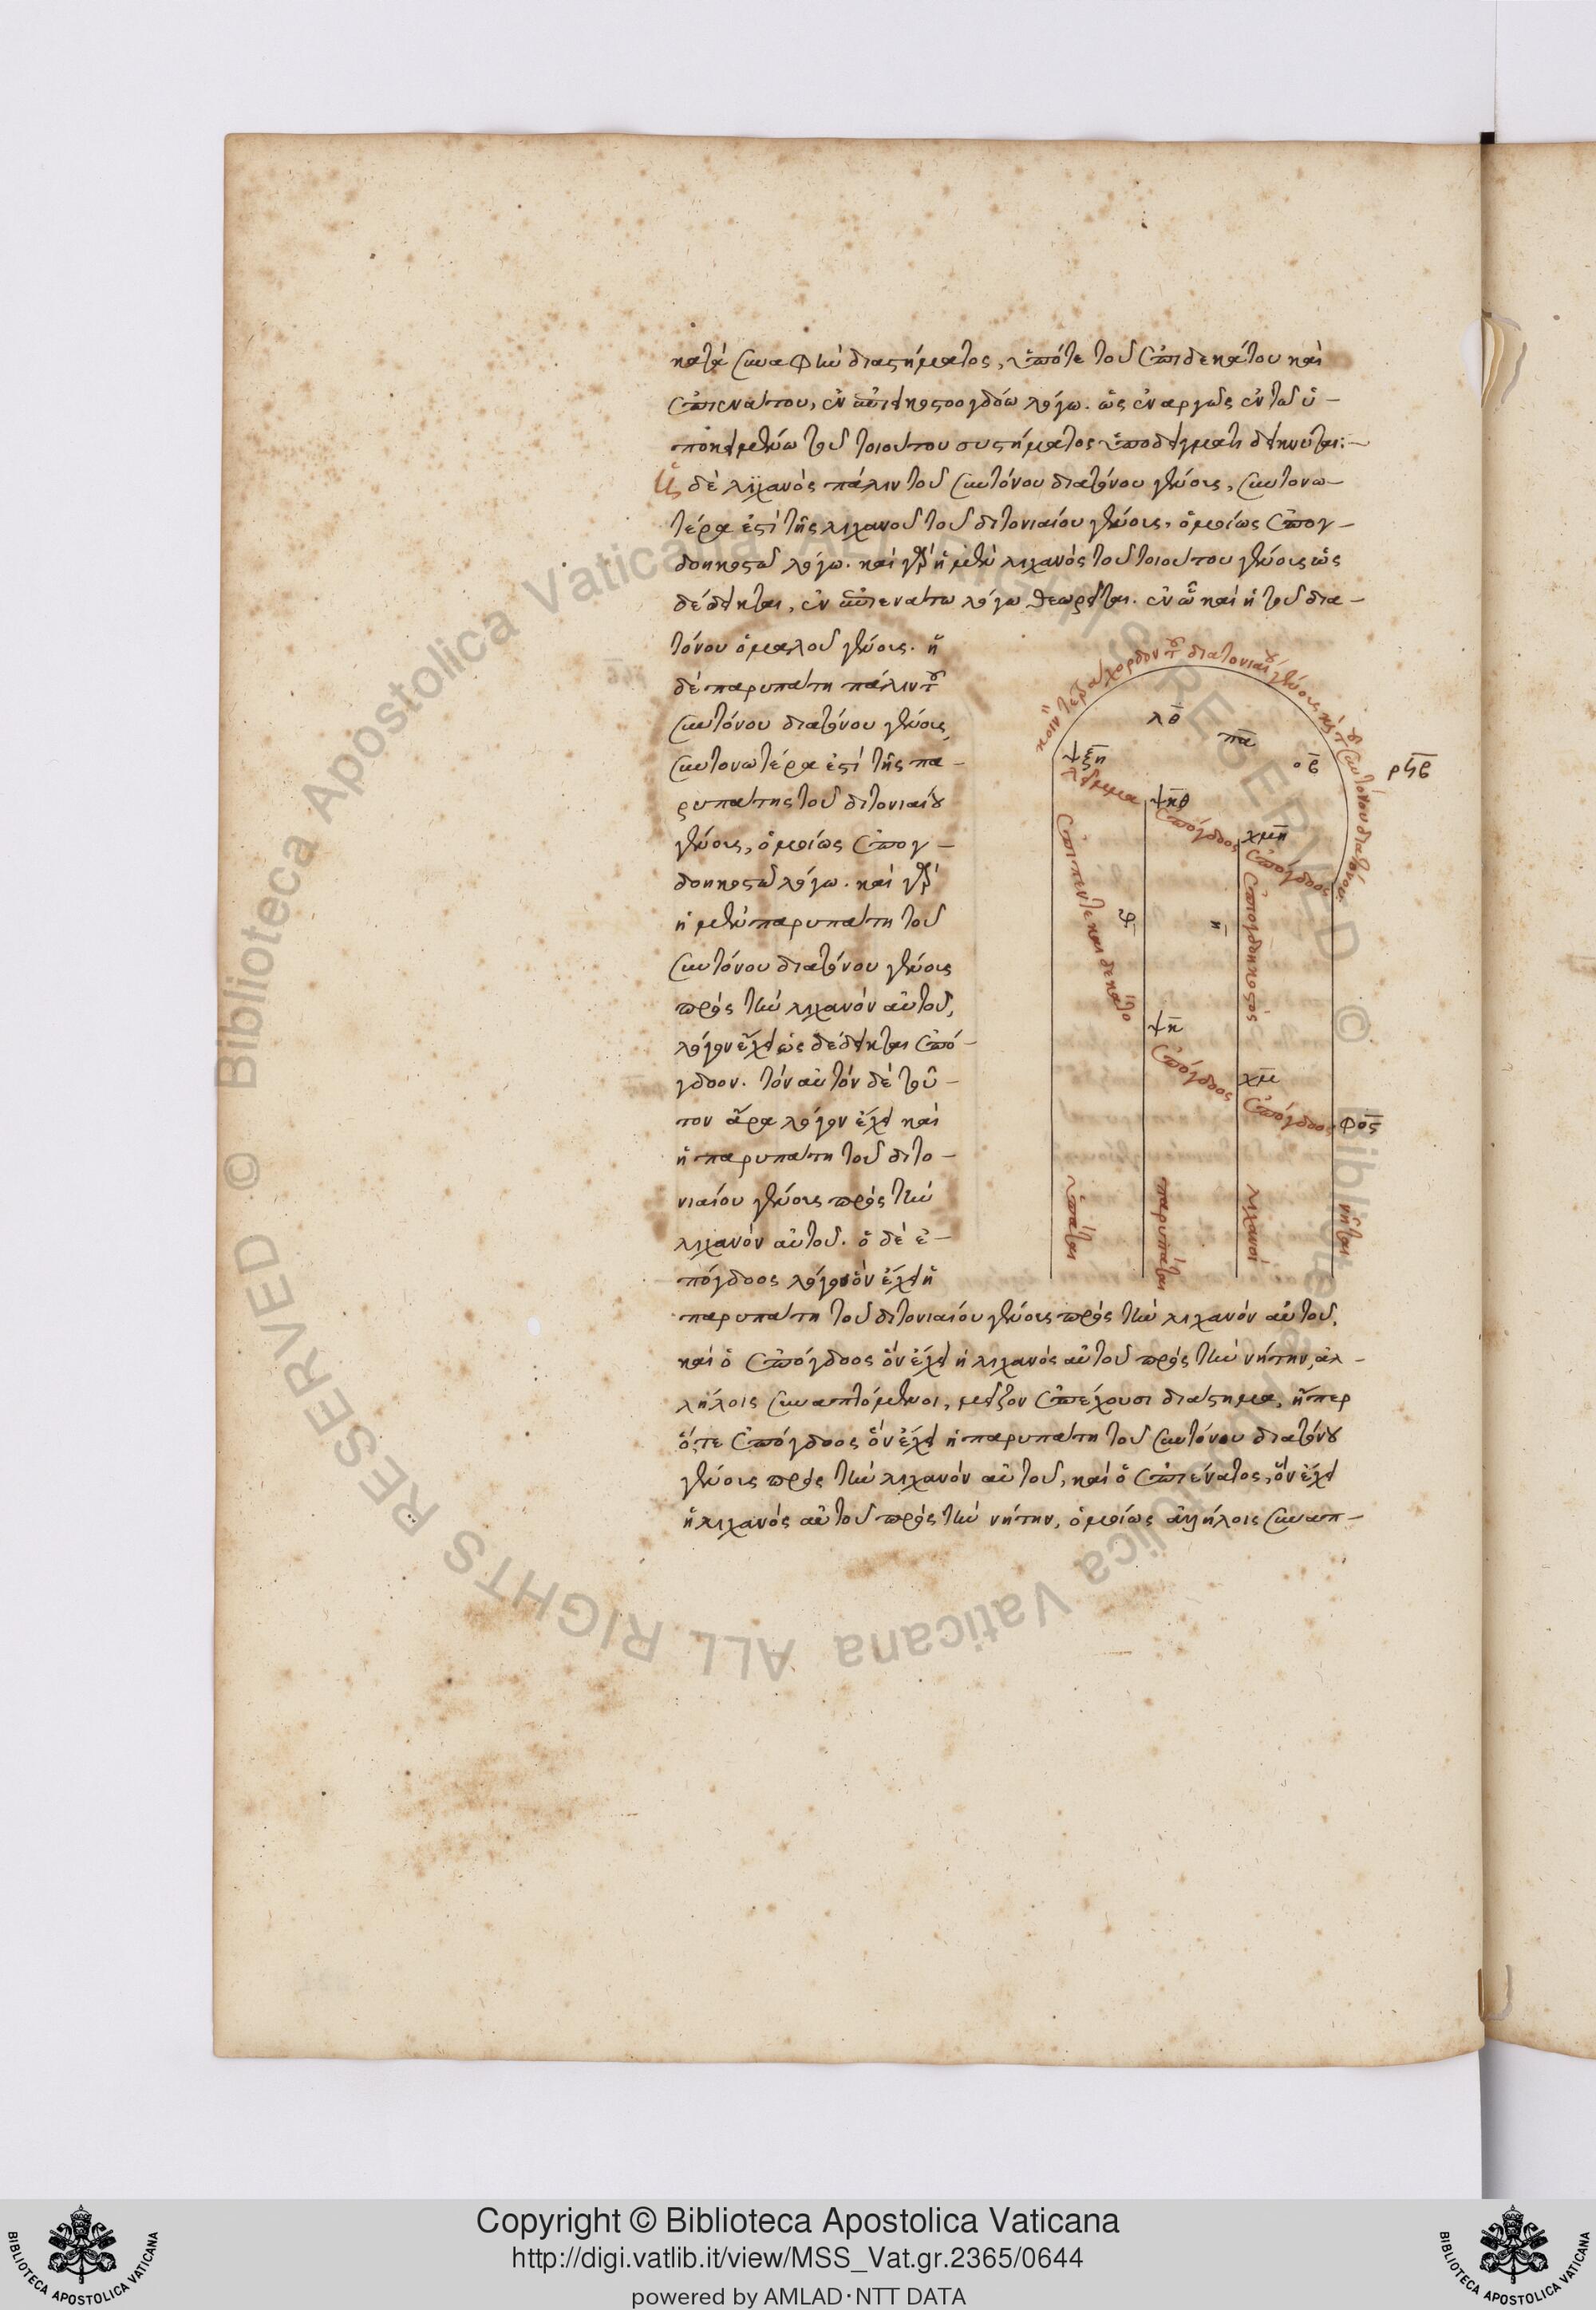 κατὰ συναφὴν διαστήματος, ὅ,τε τοῦ ἐπιδεκάτου καὶ
ἐπενάτου, ἐν εἰκοστοογδόω λόγω. ὡς ἐναργῶς ἐν τῶ ὑ-
ποκειμένω τοῦ τοιούτου συστήματος ὑποδείγματι δείκνυται:-
δὲ λιχανὸς πάλιν τοῦ συντόνου διατόνου γένους, συντονω-
τέρα ἐστὶ τῆς λιχανοῦ τοῦ διτονιαίου γένους, ὁμοίως ἐπογ-
δοηκοστῶ λόγω. καὶ γὰρ ἡ μὲν λιχανὸς τοῦ τοιούτου γένους ὡς
δέδεικται, ἐν ἐπενάτω λόγω θεωρεῖται. ἐν ὧ καὶ ἡ τοῦ δια-
τόνου ὁμαλοῦ γένους. ἡ
δὲ παρυπάτη πάλιν τοῦ
συντόνου διατόνου γένους,
συντονωτέρα ἐστὶ τῆς πα-
ρυπάτης τοῦ διτονιαίου
γένους, ὁμοίως ἐπογ-
δοηκοστῶ λόγω. καὶ γὰρ
ἡ μὲν παρυπάτη τοῦ
συντόνου διατόνου γένους
πρὸς τὴν λιχανὸν αὐτοῦ,
λόγον ἔχει ὡς δέδεικται ἐπό-
γδοον. τὸν αὐτὸν δὲ τοῦ-
τον ἄρα λόγον ἔχει καὶ
ἡ παρυπάτη τοῦ διτο-
νιαίου γένους πρὸς τὴν
λιχανὸν αὐτοῦ. ὁ δὲ ἐ-
πόγδοος λόγος ὃν ἔχει ἡ
παρυπάτη τοῦ διτονιαίου γένους πρὸς τὴν λιχανὸν αὐτοῦ,
καὶ ὁ ἐπόγδοος ὃν ἔχει ἡ λιχανὸς αὐτοῦ πρὸς τὴν νήτην, ἀλ-
λήλοις συναπτόμενοι, μεῖζον ἐπέχουσι διάστημα, ἤπερ
ὅ,τε ἐπόγδοος ὃν ἔχει ἡ παρυπάτη τοῦ συντόνου διατόνου
γένους πρὸς τὴν λιχανὸν αὐτοῦ, καὶ ὁ ἐπένατος, ὃν ἔχει
ἡ λιχανὸς αὐτοῦ πρὸς τὴν νήτην, ὁμοίως ἀλλήλοις συναπ-
τετράχορδον τοῦ διτονιαίου γένους καὶ τοῦ συντόνου διατόνου
λθ
πα
οβ
ρϟβ
ψξη
λεῖμμα
ψκθ
ἐπόγδοος
χμη
ἐπόγδοος
ἐπιπεντεκαιδέκατο
ἐπογδοηκοστός
η
ψκ
ἐπόγδοος
χμ
ἐπόγδοος
φος
ὑπάται
παρυπάται
λιχανοί
νῆται
© Biblioteca Apostolica Vaticana ALL RIGHTS RESERVED
© Biblioteca Apostolica Vaticana ALL RIGHTS RESERVED
BIBLIOTECA APOSTOLICA VATICANA
Copyright © Biblioteca Apostolica Vaticana
http://digi.vatlib.it/view/MSS_Vat.gr.2365/0644
powered by AMLAD·NTT DATA
BIBLIOTECA APOSTOLICA VATICANA